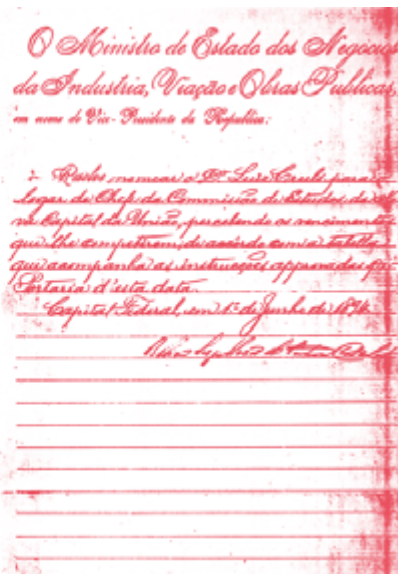 O Ministro de Estado dos Negocios
da Industria, Viação e Obras Publicas,
em nome do Vice-Presidente da Republica:
Resolve nomear o Dr. Luiz Cruls para o
logar de Chefe da Commissão de Estudos da
va Capital da União, percebendo os vencimentos
que lhe competirem, de accôrdo com a tabella
que acompanha as instrucções approvadas por
Portaria d'esta data.
Capital Federal, em 1º de Junho de 1894